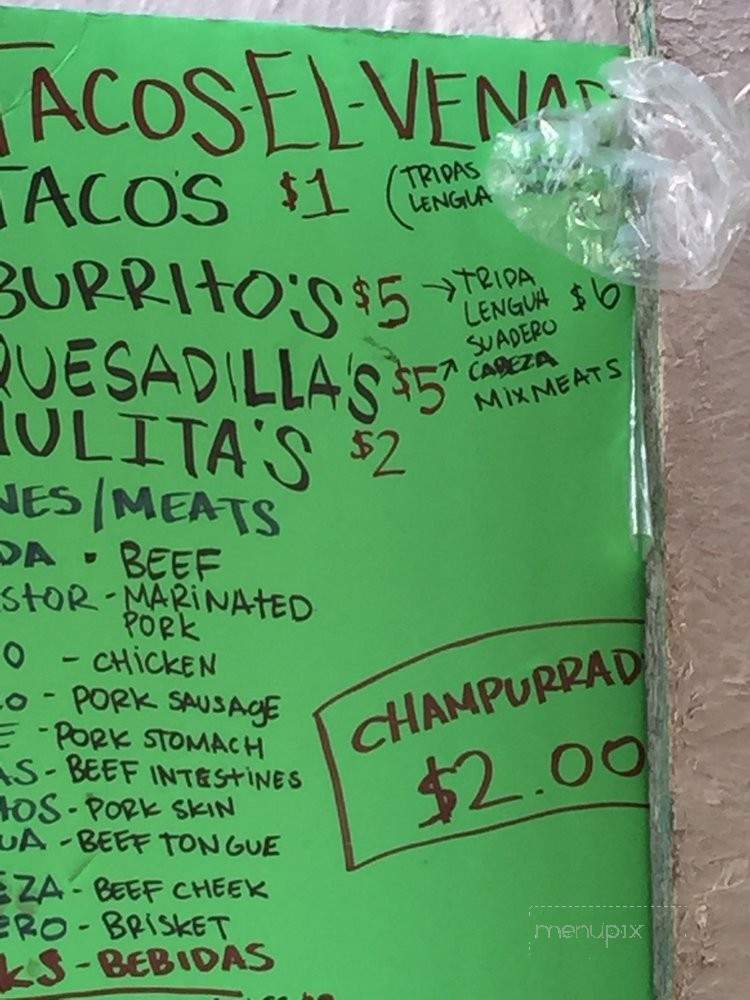 TACOS-EL-VENAD
TACO'S $1 (TRIPAS
LENGUA
BURRITO'S $5 → TRIPA
LENGUA $6
SUADERO
QUESADILLA'S $5 ↗ CABEZA
MIX MEATS
MULITA'S $2
NES/MEATS
DA - BEEF
STOR - MARINATED
PORK
O - CHICKEN
O - PORK SAUSAGE
E - PORK STOMACH
AS - BEEF INTESTINES
OS - PORK SKIN
UA - BEEF TONGUE
EZA - BEEF CHEEK
ERO - BRISKET
KS - BEBIDAS
CHAMPURRAD
$2.00
menupix